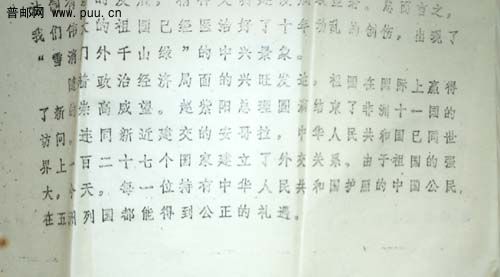 普邮网 www.puu.cn
我们伟大的祖国已经医治好了十年动乱的创伤，出现了
“雪消门外千山绿”的中兴景象。
随着政治经济局面的兴旺发达，祖国在国际上赢得
了新的崇高威望。赵紫阳总理圆满结束了非洲十一国的
访问。连同新近建交的安哥拉，中华人民共和国已同世
界上一百二十七个国家建立了外交关系。由于祖国的强
大，今天。每一位持有中华人民共和国护照的中国公民，
在五洲列国都能得到公正的礼遇。